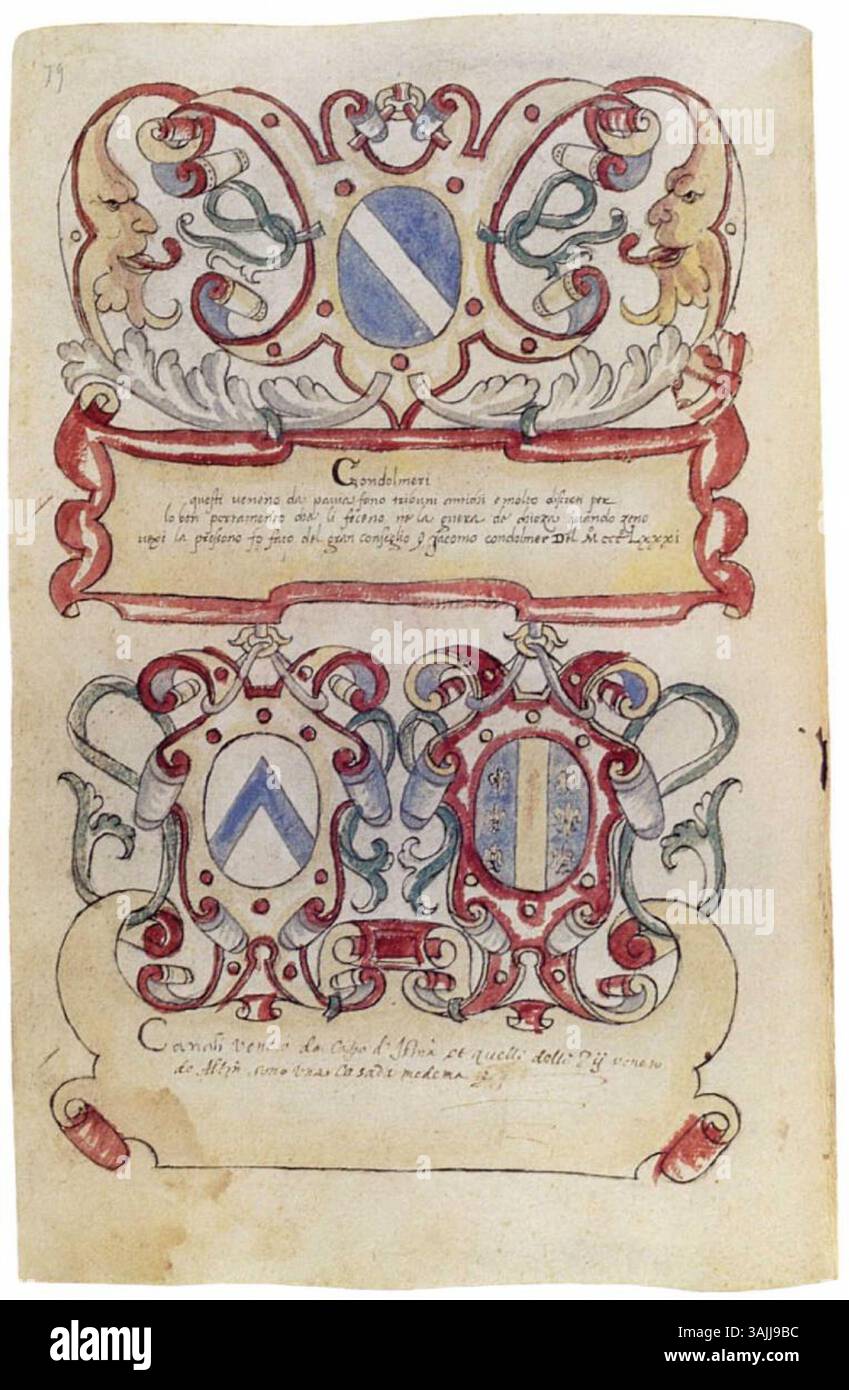 79
Condolmeri
questi veneno da pauia fono tribuni antiqi e molto discreti per
lo bon portamento che li feceno, ne la guera de chioza quando zeno
la presono fo fato del gran conseglio Jacomo condolmer Del MccclXxxi
Canali veneno da Capo d'Istria et quelli dalli veneno
de Altin sono una Casada medema
a
alamy
alamy
a
a
alamy
a
alamy
Image ID: 3AJJ9BC
www.alamy.com